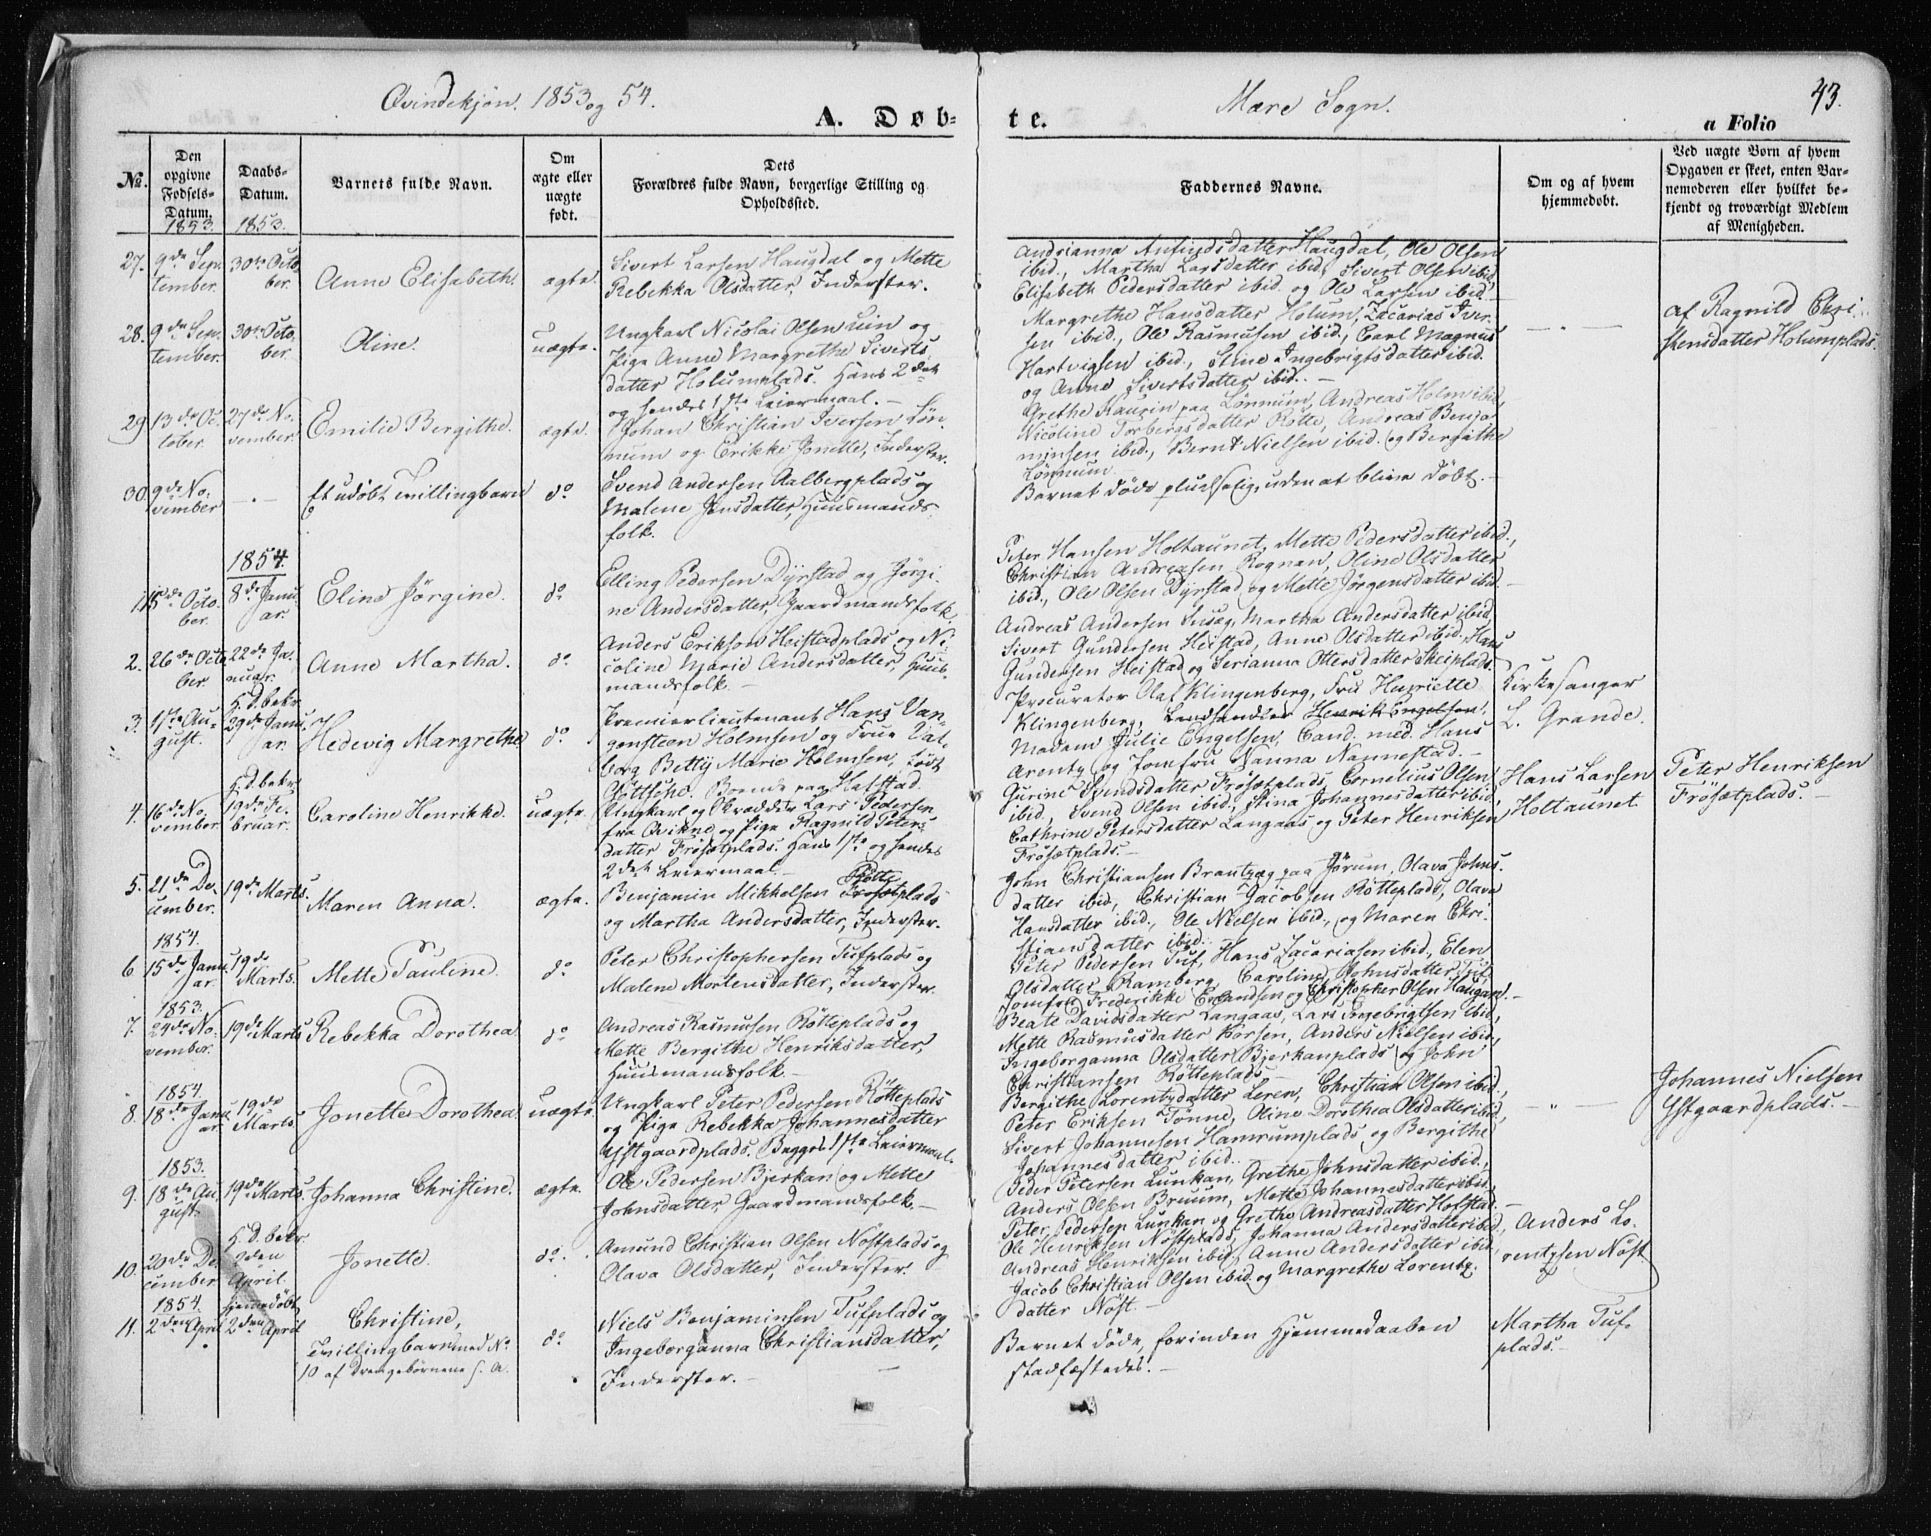 Qvindekjøn. 1853 og 54.
Mære Sogn.
43.
A. Døb-
te.
a Folio
No.
Den opgivne Fødsels-Datum.
Daabs-Datum.
Barnets fulde Navn.
Om ægte eller uægte født.
Dets Forældres fulde Navn, borgerlige Stilling og Opholdssted.
Faddernes Navne.
Om og af hvem hjemmedøbt.
Ved uægte Børn af hvem Opgaven er skeet, enten Barnemoderen eller hvilket bekjendt og troværdigt Medlem af Menigheden.
1853. 1853.
27. 9de September. 30te October. Anne Elisabeth. ægte.
Sivert Larsen Haugdal og Mette
Rebekka Olsdatter, Inderster.
Andrianna Anfindsdatter Haugdal, Ole Olsen
ibid., Martha Larsdatter ibid, Sivert Olsen ibid,
Elisabeth Pedersdatter ibid. og Ole Larsen ibid.
28. 9de September. 30te October. Oline. uægte.
Ungkarl Nicolai Olsen og
Pige Anne Margrethe Siverts
datter Holumplads. Hans 2det
og hendes 1ste Leiermaal.-
Margrethe Hansdatter Holum, Zacarias Iver-
sen ibid., Ole Rasmusen ibid., Carl Magnus
Hartvigsen ibid., Stine Ingebrigtsdatter ibid.
og Anne Sivertsdatter ibid..-
af Ragnild Chri-
stensdatter Holumplads.
29. 13de October. 27de November. Emilie Bergithe. ægte.
Johan Christian Iversen Løn-
num og Erikke Jonette, Inderster.
Grethe Kaurin paa Lønnum, Andreas Holm ibid,
Nicoline Torbergsdatter Røtte, Andreas Benja-
minsen ibid., Bernt Nielsen ibid. og Bergithe
Lønnum.-
30. 9de November - . - Et udøbt Tvillingbarn do
Svend Andersen Aalbergplads og
Malene Jensdatter, Huusmands-
folk.
Barnet døde pludselig, uden at blive døbt.-
1854.
1. 15de October. 8de Januar. Eline Jørgine. do
Elling Pedersen Dyrstad og Jørgi-
ne Andersdatter, Gaardmandsfolk.
Peter Hansen Holtaunet, Mette Pedersdatter ibid.,
Christian Andreasen Rognan, Oline Olsdatter
ibid., Ole Olsen Dyrstad og Mette Jørgensdatter ibid.
2. 26de October. 22de Januar. Anne Martha. do
Anders Eriksen Heistadplads og Ni-
coline Marie Andersdatter, Huus-
mandsfolk.-
Andreas Andersen, Martha Andersdatter ibid,
Sivert Gundersen Heistad, Anne Olsdatter ibid, Hans
Gundersen Heistad og Serianna Ottersdatter Skeiplads.
3. 1ste August. H.D. bekr. 29de Januar. Hedevig Margrethe do
Premierlieutenant Hans Van-
gensteen Holmsen og Frue Val-
borg Betty Marie Holmsen, født
Boende paa Halstad.
Procurator Olaf Klingenberg, Fru Henriette
Klingenberg, Henrik Engelsen,
Madam Julie Engelsen, Cand. med. Hans
Arentz og Jomfru Nanna Nannestad.-
Kirkesanger
L. Grande.
4. 16de November H.D. bekr. 19de Februar. Caroline Henrikke. uægte.
Ungkarl og Skrædder Lars Pedersen
fra Qvikne og Pige Ragnild Peters-
datter Frøsetplads. Hans 1ste og hendes
2det Leiermaal.-
Gurine Svendsdatter Frøsetplads, Cornelius Olsen
ibid, Svend Olsen ibid, Stina Johannesdatter ibid,
Cathrine Petersdatter Langaas og Peter Henriksen
Frøsetplads.-
Hans Larsen
Holtaunet.
Peter Henriksen
Frøsetplads.-
5. 21de December. 19de Marts. Maren Anna. ægte.
Benjamin Mikkelsen Røtteplads
og Martha Andersdatter, Inderster.
John Christiansen Brautzeg paa Jørum, Olava Johns-
datter ibid, Christian Jacobsen Røtteplads, Olava
Hansdatter ibid., Ole Nielsen ibid., og Maren Chri-
stiansdatter ibid.-
1854.
6. 15de Januar. 19de Marts. Mette Pauline. do
Peter Christophersen Tufplads og
Malene Mortensdatter, Inderster.
Peter Pedersen Tuf, Hans Zacariasen ibid, Elen
Olsdatter Ramberg, Caroline Johnsdatter Tuf,
Jomfru Frederikke Erlandsen og Christopher Olsen Haugan.-
1853.
7. 24de November. 19de Marts Rebekka Dorothea do
Andreas Rasmusen Røtteplads og
Mette Bergithe Henriksdatter,
Huusmandsfolk.-
Beate Davidsdatter Langaas, Lars Ingebrigtsen ibid,
Mette Rasmusdatter Korsen, Anders Nielsen ibid,
Ingeborganna Olsdatter Bjerkanplads og John
Christiansen Røtteplads.-
1854.
8. 18de Januar. 19de Marts. Jonette Dorothea uægte.
Ungkarl Peter Pedersen Røtteplads
og Pige Rebekka Johannesdatter
Ystgaardplads. Begges 1ste Leiermaal.
Bergithe Lorentzdatter Leren, Christian Olsen ibid,
Peter Eriksen Tønne, Oline Dorothea Olsdatter ibid,
Sivert Johannesen Hamrumplads og Bergithe
Johannesdatter ibid.
Johannes Nielsen
Ystgaardplads.-
1853.
9. 18de August. 19de Marts. Johanna Christine. ægte.
Ole Pedersen Bjerkan og Mette
Johnsdatter, Gaardmandsfolk.-
Peder Petersen Lunkan, Grethe Johnsdatter ibid.,
Anders Olsen Bruum, Mette Johannesdatter ibid.
Peter Pedersen Lunkan og Grethe Andreasdatter Hofstad.-
10. 20de December H.D. bekr. 9den April. Jonette. do.
Amund Christian Olsen Nøstplads og
Olava Olsdatter, Inderster.
Ole Henriksen Nøstplads, Johanna Andersdatter ibid,
Andreas Henriksen ibid, Anne Andersdatter ibid,
Jacob Christian Olsen ibid. og Margrethe Lorentz-
datter Nøst.-
Anders Lo-
rentzsen Nøst.
1854.
11. 2den April hjemedøbt 2den April Christine,
Tvillingbarn med No
10 af Drengebørnene s. A.
do.
Niels Benjaminsen Tufplads og
Ingeborganna Christiansdatter,
Inderster.-
Barnet døde, forinden Hjemmedaaben
stadfæstedes.-
Martha Tuf-
plads.-